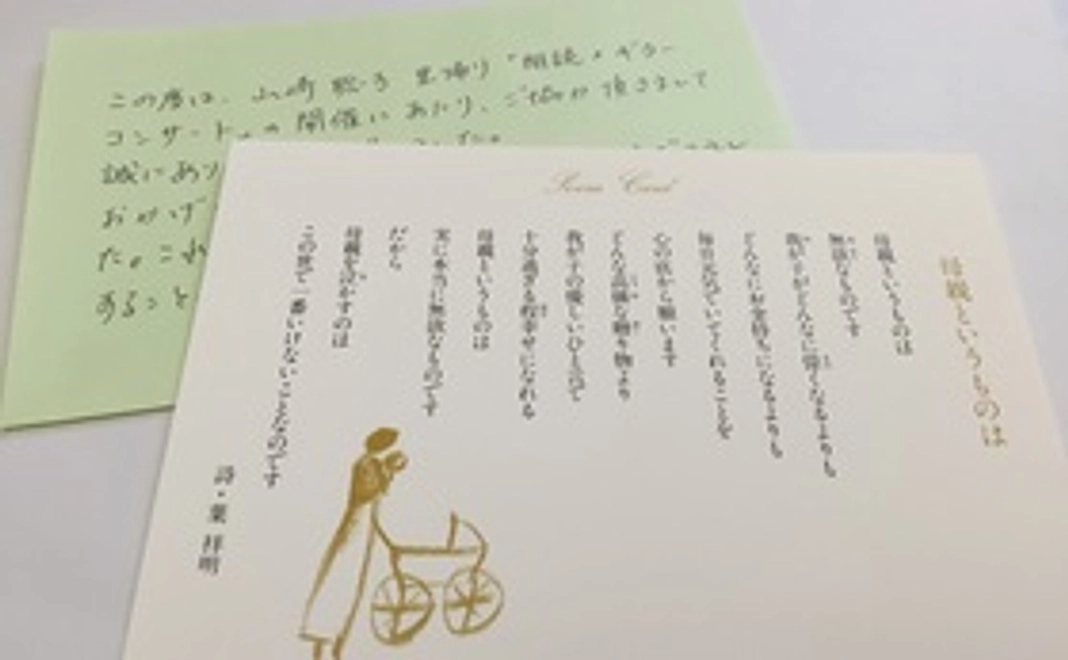 この度は、山崎 聡子 里帰り "朗読×ギター
コンサート"の開催にあたり、ご協力頂きまして
誠にあり
おかげ
たっこれ
あること
Poem Card
母親というものは
母親というものは
無欲なものです
我が子がどんなに偉くなるよりも
どんなにお金持ちになるよりも
毎日元気でいてくれることを
心の底から願います
どんな高価な贈り物より
我が子の優しいひと言で
十分過ぎる程幸せになれる
母親というものは
実に本当に無欲なものです
だから
母親を泣かすのは
この世で一番いけないことなのです
詩・葉 祥明